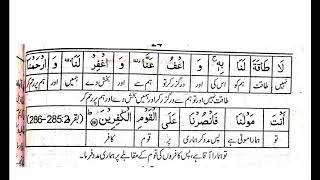 لَا طَاقَةَ لَنَا بِهٖ ۚ وَ اعْفُ عَنَّا ۥ وَ اغْفِرْ لَنَا ۥ وَ ارْحَمْنَا
نہیں طاقت ہم کو اس کی اور درگزر کر ہم سے اور بخش دے ہمیں اور ہم پر رحم کر
طاقت نہیں اور تو ہم سے درگزر کر اور ہمیں بخش دے اور ہم پر رحم کر
اَنْتَ مَوْلٰىنَا فَانْصُرْنَا عَلَى الْقَوْمِ الْكٰفِرِيْنَ (بقرہ 2: 285-286)
تو ہمارا مولیٰ ہے پس مدد کر ہماری پر قوم کافر
تو ہمارا آقا ہے، پس کافروں کی قوم کے مقابلے پر ہماری مدد فرما۔